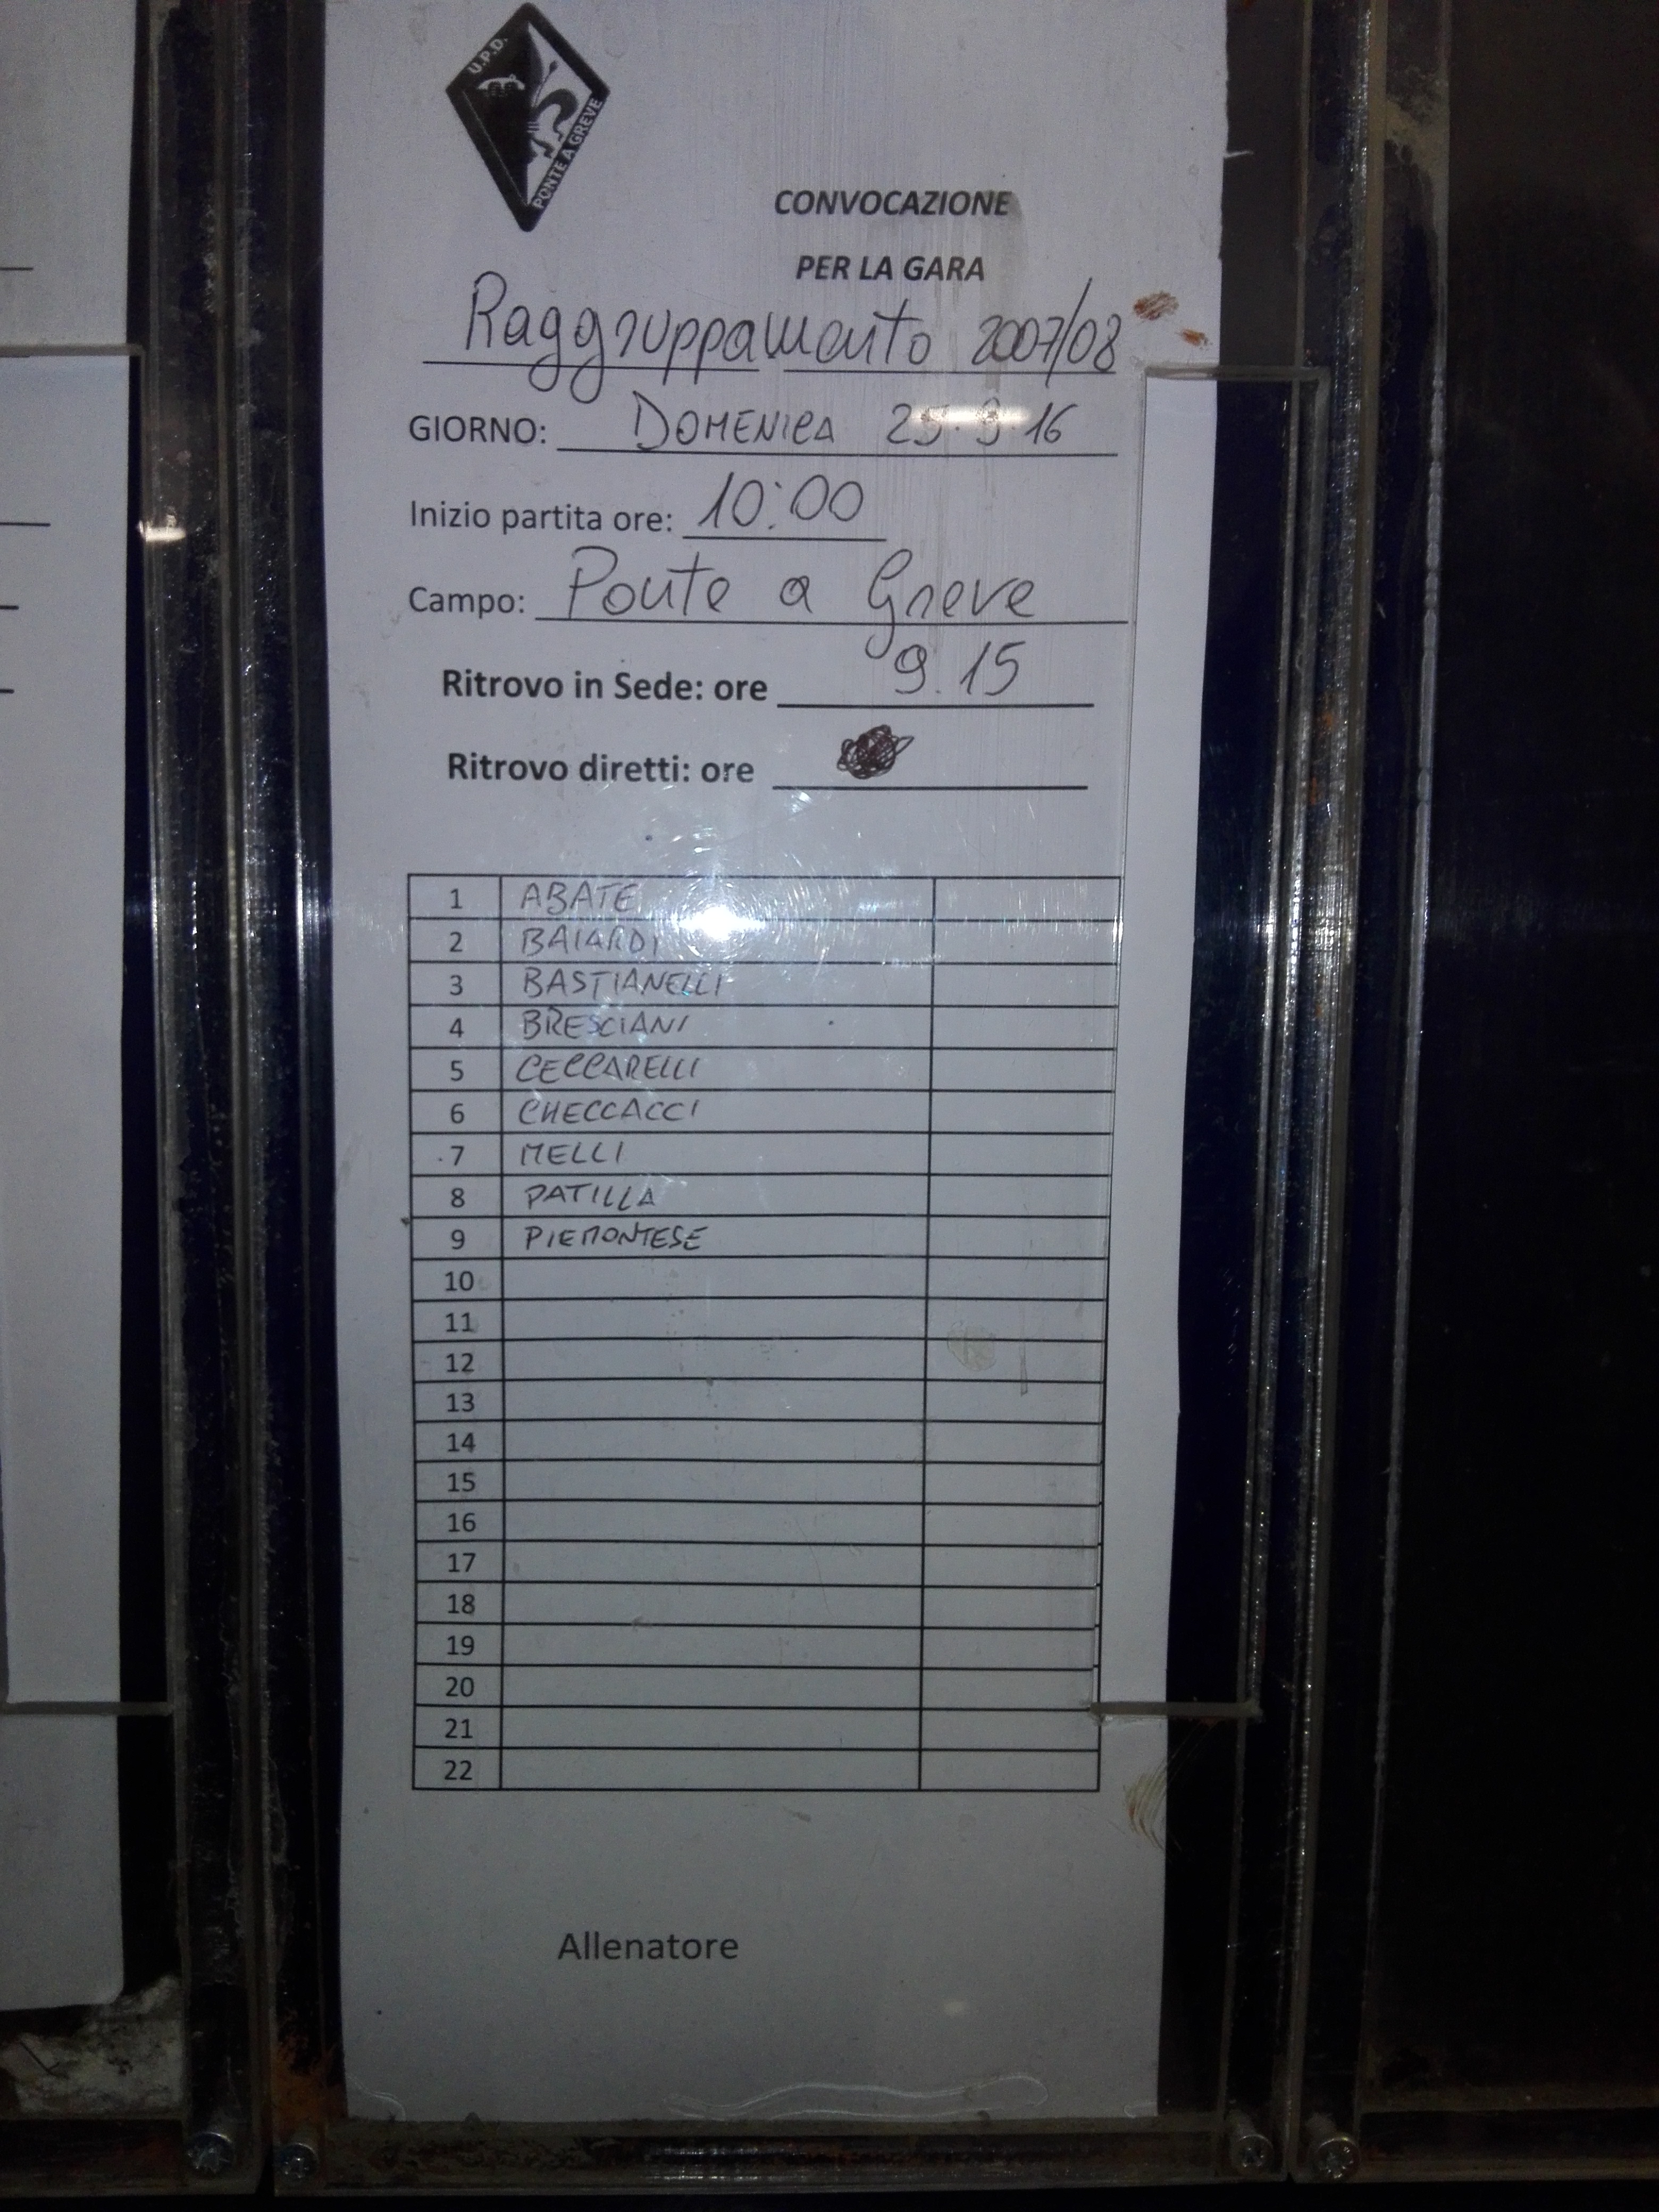 U.P.D.
PONTE A GREVE
CONVOCAZIONE
PER LA GARA
Raggruppamento 2007/08
GIORNO: DOMENICA 25.9.16
Inizio partita ore: 10:00
Campo: Ponte a Greve
Ritrovo in Sede: ore 9.15
Ritrovo diretti: ore
1 ABATE
2 BAIARDI
3 BASTIANELLI
4 BRESCIANI
5 CECCARELLI
6 CHECCACCI
7 MELLI
8 PATILLA
9 PIEMONTESE
10
11
12
13
14
15
16
17
18
19
20
21
22
Allenatore